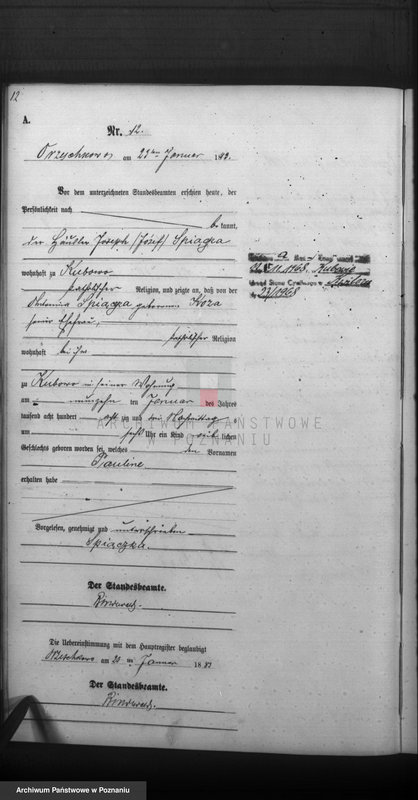 12
A.
Nr. 12.
am 23ten Januar 188
Vor dem unterzeichneten Standesbeamten erschien heute, der
Persönlichkeit nach
be kannt,
der Häusler Joseph (Josef) Spiączka
wohnhaft zu Kuboro
katholischer Religion, und zeigte an, daß von der
Antonina Spiączka geborenen Koza
seiner Ehefrau,
katholischer Religion
wohnhaft bei ihm
zu Kuboro in seiner Wohnung
am neunzehn ten Januar des Jahres
tausend acht hundert acht zig und drei Nachmittags
um sechs Uhr ein Kind weib lichen
Geschlechts geboren worden sei, welches den Vornamen
Pauline
erhalten habe
Vorgelesen, genehmigt und unterschrieben
Spiaczka.
Der Standesbeamte.
Die Uebereinstimmung mit dem Hauptregister beglaubigt
am 23 ten Januar 1883
Der Standesbeamte.
11.1968
22/1968
ARCHIWUM PAŃSTWOWE
W POZNANIU
Archiwum Państwowe w Poznaniu